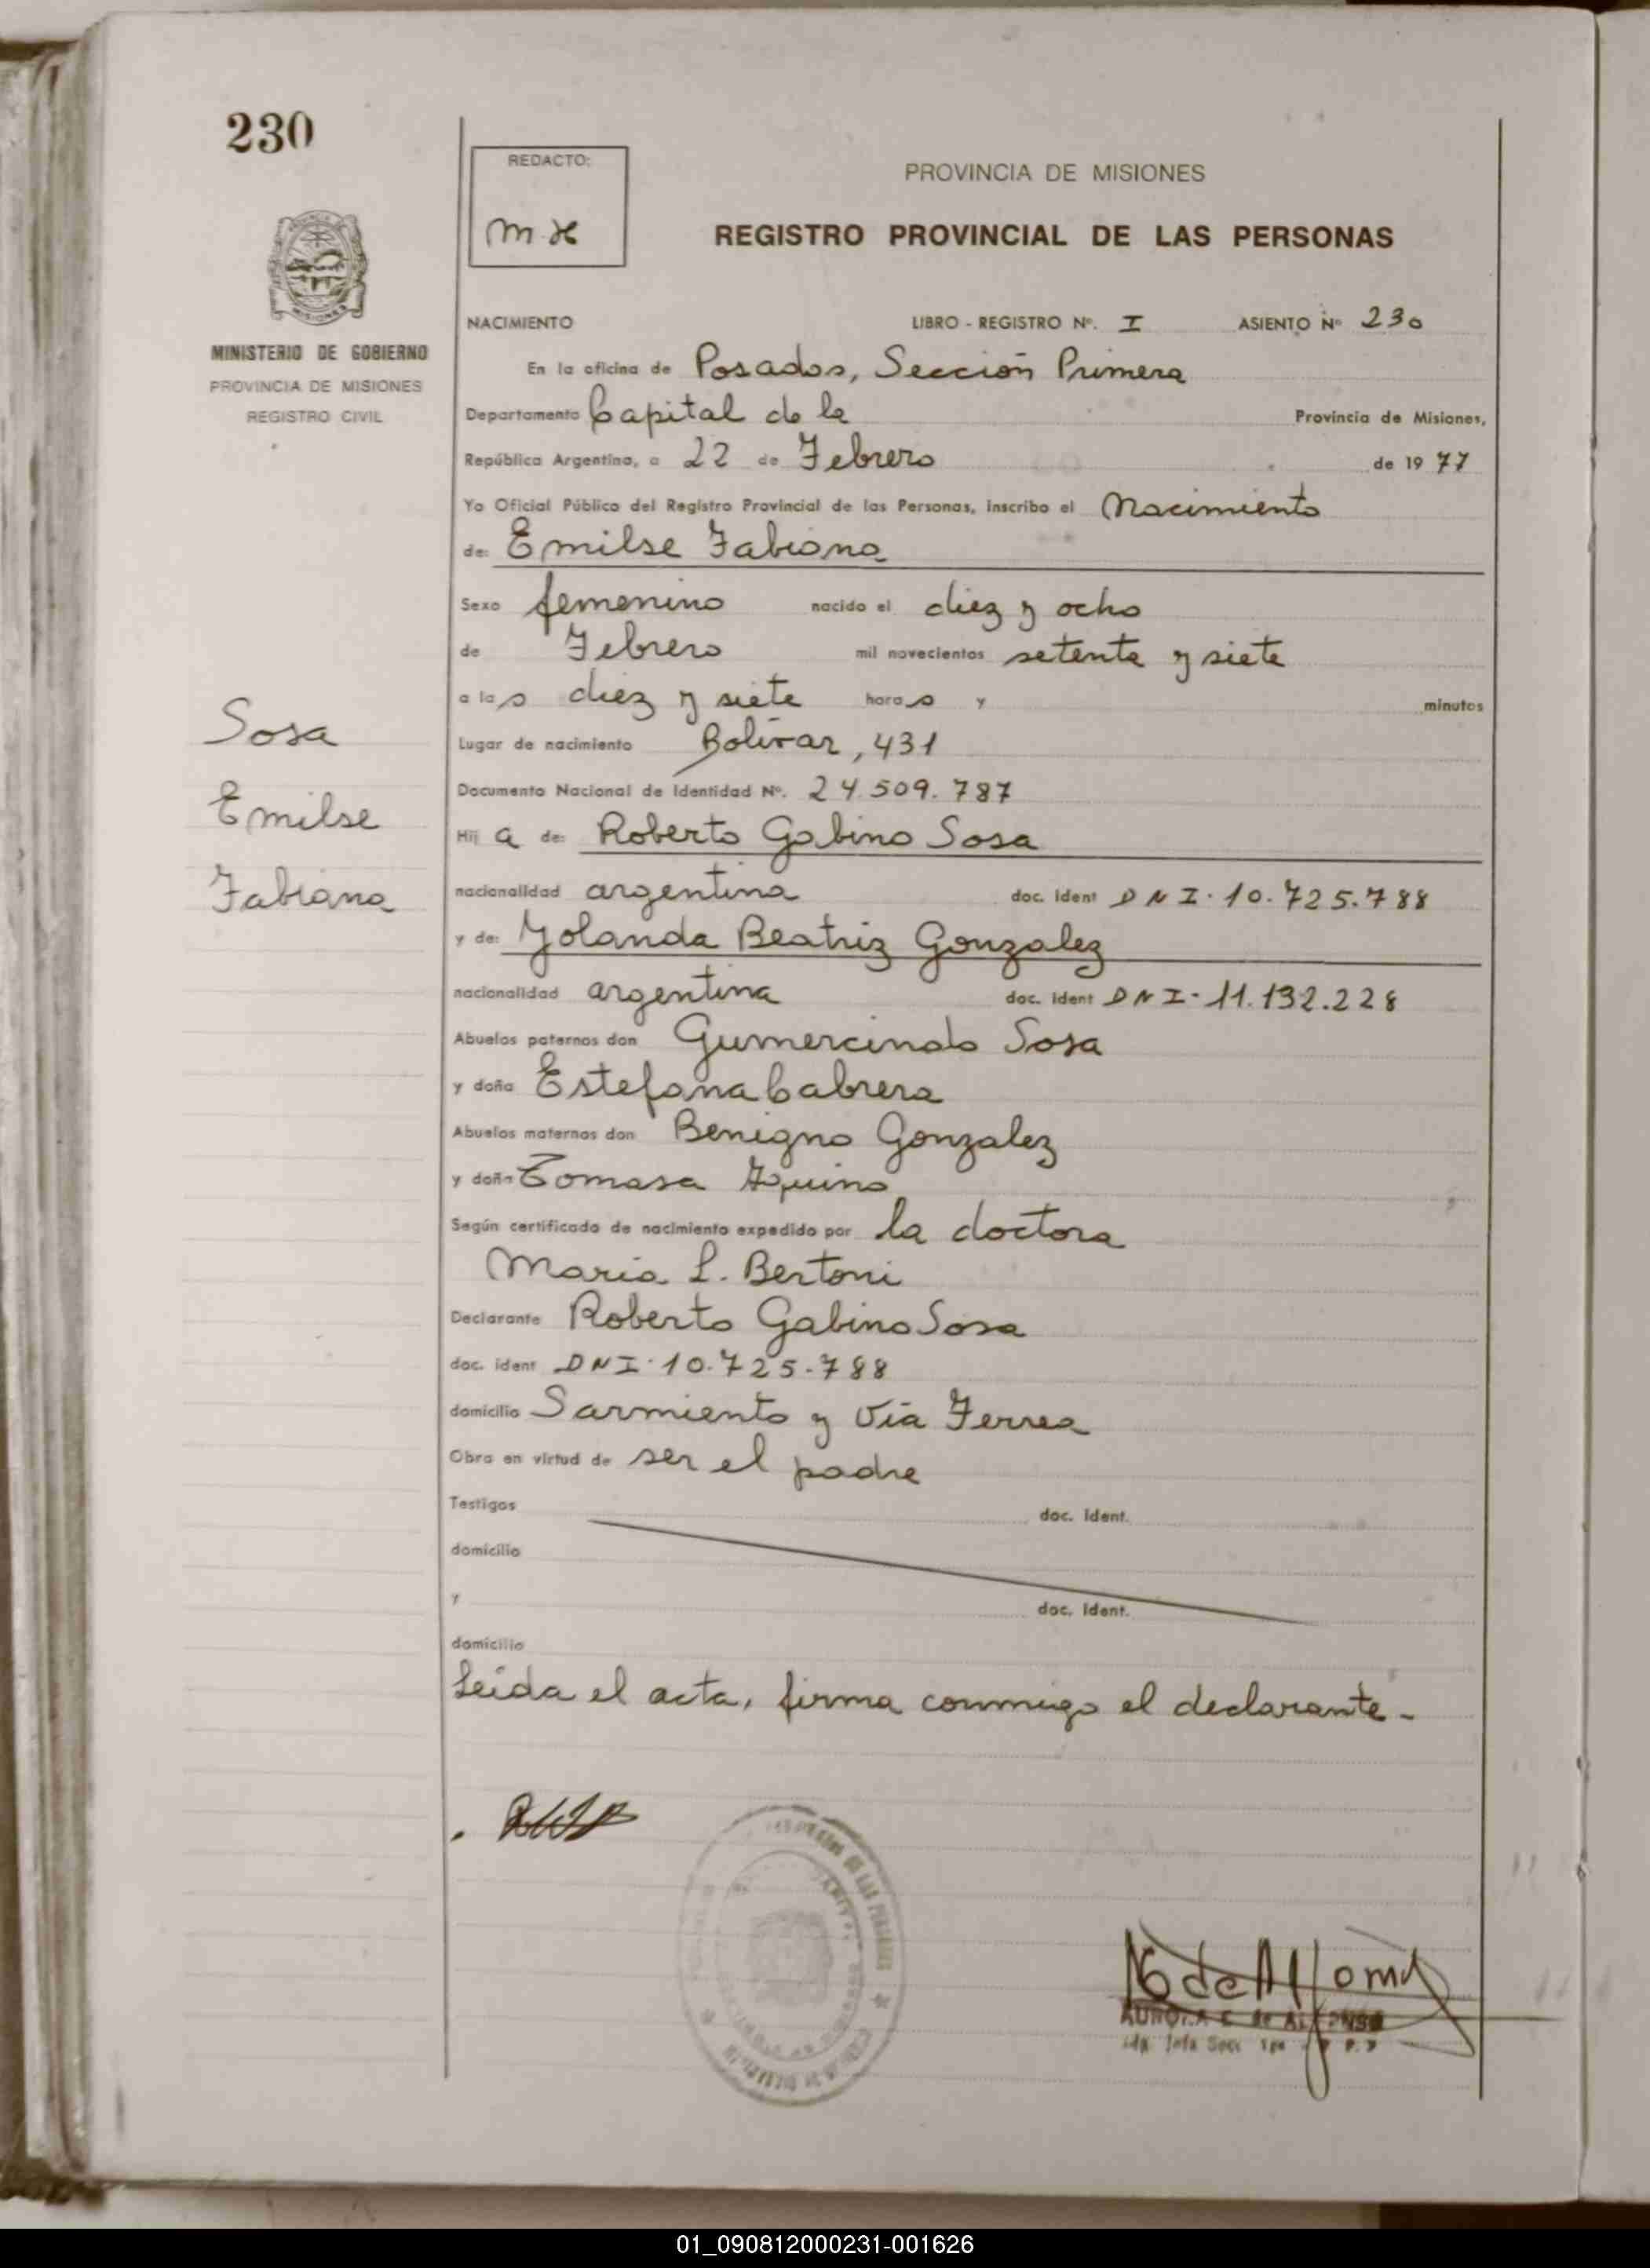 230
REDACTO:
PROVINCIA DE MISIONES
REGISTRO PROVINCIAL DE LAS PERSONAS
MISIONES
MINISTERIO DE GOBIERNO
PROVINCIA DE MISIONES
REGISTRO CIVIL
NACIMIENTO LIBRO - REGISTRO Nº. I ASIENTO Nº 230
En la oficina de Posadas, Sección Primera
Departamento Capital de la Provincia de Misiones,
República Argentina, a 22 de Febrero de 1977
Yo Oficial Público del Registro Provincial de las Personas, inscribo el Nacimiento
de: Emilse Fabiana
Sexo femenino nacido el diez y ocho
de Febrero mil novecientos setenta y siete
a las diez y siete horas y minutos
Lugar de nacimiento Bolívar, 431
Documento Nacional de Identidad Nº. 24.509.787
Hij a de: Roberto Gabino Sosa
nacionalidad argentina doc. ident DNI. 10.725.788
y de: Yolanda Beatriz Gonzalez
nacionalidad argentina doc. ident DNI. 11.132.228
Abuelos paternos don Gumercindo Sosa
y doña Estefana Cabrera
Abuelos maternos don Benigno Gonzalez
y doña Tomasa Aquino
Según certificado de nacimiento expedido por la doctora
Maria L. Bertoni
Declarante Roberto Gabino Sosa
doc. ident DNI. 10.725.788
domicilio Sarmiento y Vía Ferrea
Obra en virtud de ser el padre
Testigos doc. ident.
domicilio
y doc. ident.
domicilio
Leída el acta, firma conmigo el declarante.-
Sosa
Emilse
Fabiana
DE LAS PERSONAS
AURORA C. de ALFONSO
01_090812000231-001626